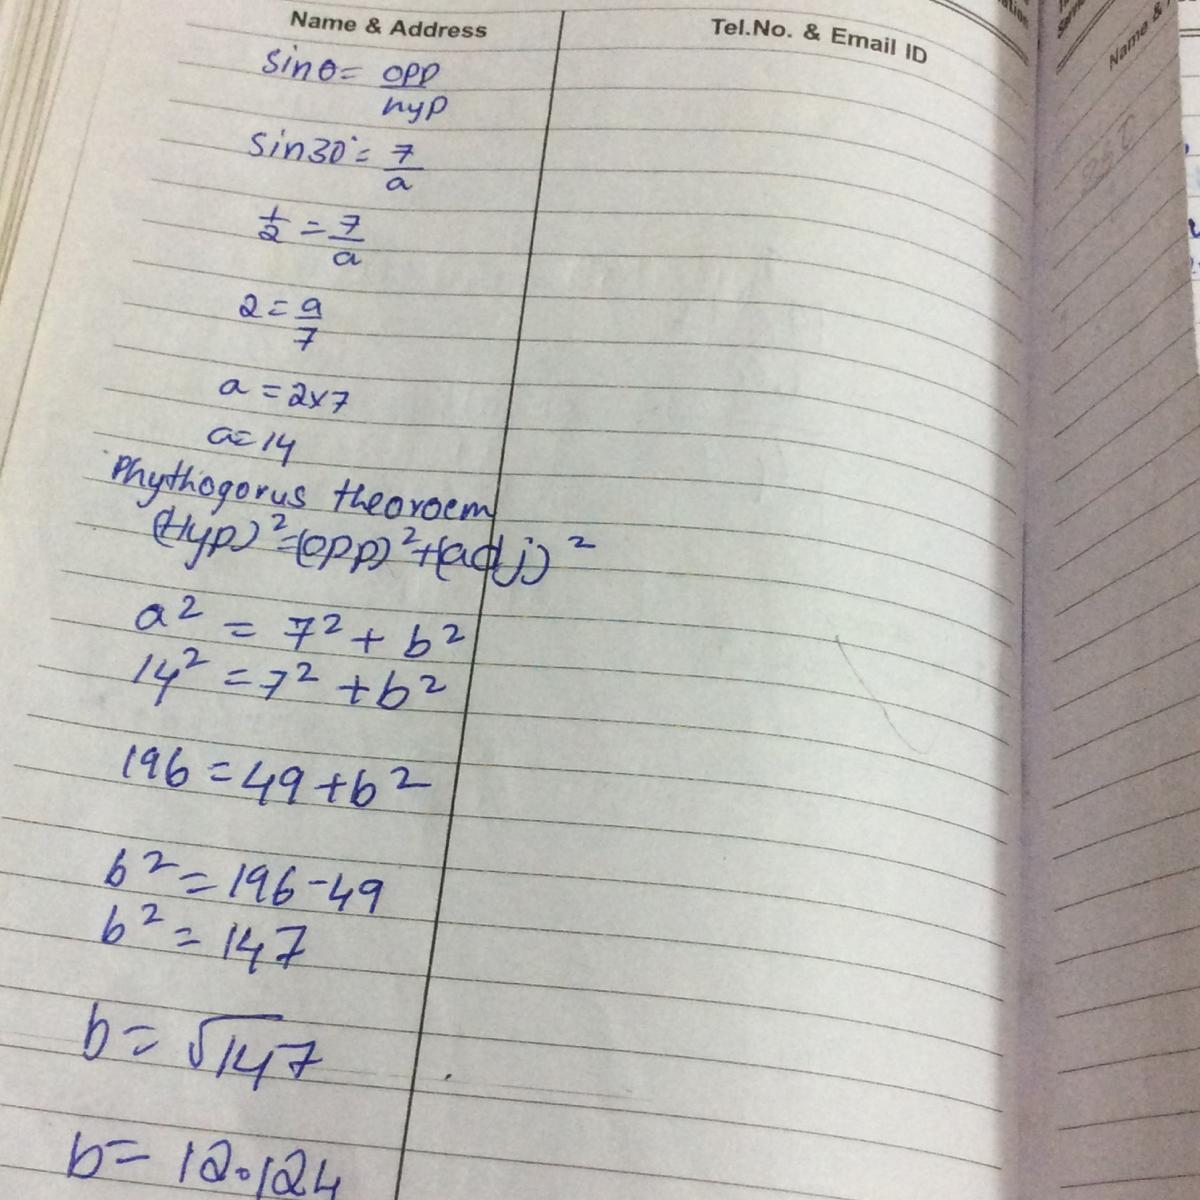 Name & Address
Tel.No. & Email ID
sinθ = opp/hyp
sin30° = 7/a
1/2 = 7/a
2 = a/7
a = 2x7
a= 14
Phythogorus theoroem
(Hyp)² =(opp)²+(adj)²
a² = 7² + b²
14² = 7² + b²
196 = 49 + b²
b² = 196-49
b² = 147
b = √147
b = 12.124
Name &